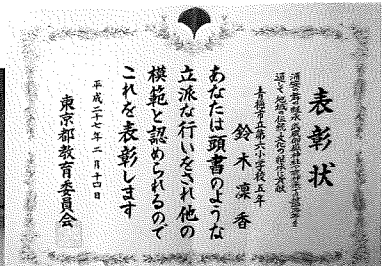 表彰状
通して地域の伝統・文化の継承に貢献
青梅市立第六小学校五年
鈴木凜香
あなたは頭書のような
立派な行いをされ他の
模範と認められるので
これを表彰します
平成二十七年二月十四日
東京都教育委員会